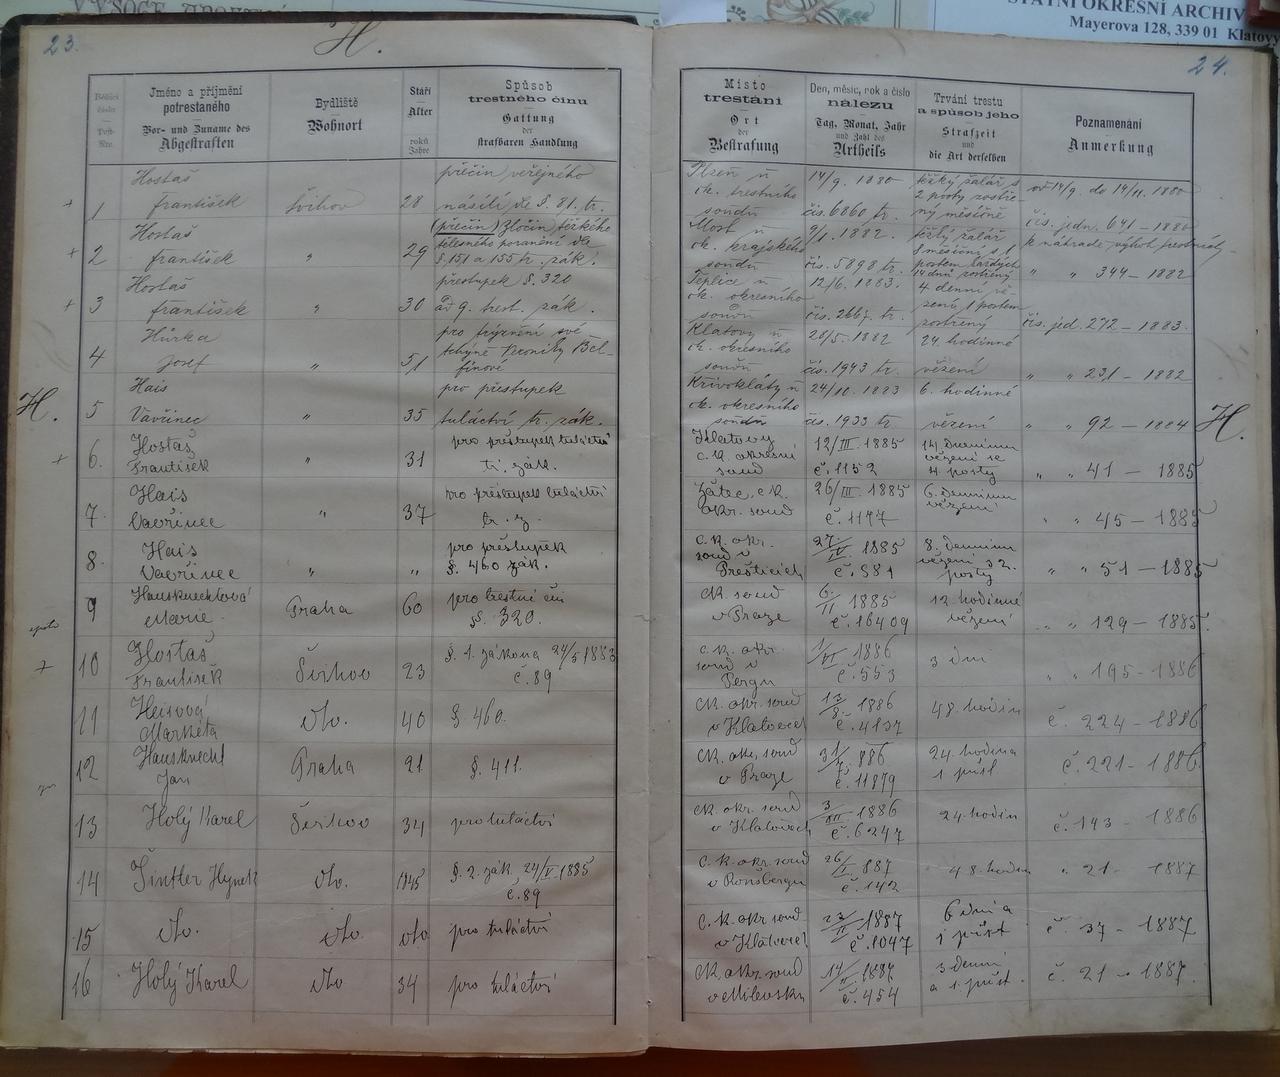 STÁTNÍ OKRESNÍ ARCHIV
Mayerova 128, 339 01 Klatovy
23.
H.
24.
Běžící číslo
Post-Nro.
Jméno a příjmění
potrestaného
Vor- und Zuname des
Abgestraften
Bydliště
Wohnort
Stáří
Alter
roků
Jahre
Spůsob
trestného činu
Gattung
der
strafbaren Handlung
Místo
trestání
Ort
der
Bestrafung
Den, měsíc, rok a číslo
nálezu
Tag, Monat, Jahr
und Zahl des
Urtheils
Trvání trestu
a spůsob jeho
Strafzeit
und
die Art derselben
Poznamenání
Anmerkung
+ 1
Hostaš
František
Švihov
28
přečin veřejného
násilí dle §. 81. tr.
Plzeň u
ck. trestního
soudu
14/9. 1880
čís. 6860 tr.
těžký žalář s
2 posty
od 14/9. do 14/11. 1880
čís. jedn. 641 – 1880
+ 2
Hostaš
František
"
29
(přečin) zločin těžkého
tělesného poranění dle
§. 151 a 155 tr. zák.
Most u
ck. krajského
soudu
9/1. 1882.
čís. 5898 tr.
těžký žalář
" " 344 – 1882
+ 3
Hostaš
František
"
30
přestupek §. 320
trest. zák.
Teplice u
ck. okresního
soudu
12/6. 1883.
čís. 2667 tr.
4 denní vě-
zení, 1 postem
čís. jed. 272 – 1883.
4
Hůrka
Josef
"
51
pro trýznění své
tchýně
Klatovy u
ck. okresního
soudu
čís. 1943 tr.
24. hodinné
vězení
" " 231 – 1882
H.
5
Hais
Vavřinec
"
35
pro přestupek
tuláctví tr. zák.
Křivokláty u
ck. okresního
soudu
24/10. 1883
čís. 1933 tr.
6. hodinné
vězení
" " 92 – 1884
H.
+ 6.
Hostaš
František
"
31
pro přestupek tuláctví
tr. zák.
Klatovy
c. k. okresní
soud
12/III. 1885
č. 1152
14. denním
vězení se
4 posty
" " 41 – 1885
7.
Hais
Vavřinec
"
37
pro přestupek tuláctví
tr. z.
Žatec, c. k.
okr. soud
26/III. 1885
č. 1177
6. denním
vězení
" " 45 – 1885
8.
Hais
Vavřinec
"
"
pro přestupek
§. 460 zák.
c. k. okr.
soud v
Přešticích
27/IV. 1885
č. 581
8. denním
vězení s 2.
posty
" " 51 – 1885
9
Hausknechtová
Marie
Praha
60
pro trestní čin
§. 320.
ck. soud
v Praze
6./II 1885
č. 16409
12. hodinné
vězení
" " 129 – 1885.
+ 10
Hostaš
František
Švihov
23
§. 1. zákona 24/5 1885
č. 89
c. k. okr.
soud v
Pergu
1/VI 1886
č. 553
3 dni
" " 195 – 1886
11
Heisová
Markéta
dto.
40
§ 460.
ck. okr. soud
v Klatovech
13/8. 1886
č. 4137
48. hodin
č. 224 – 1886
12
Hausknecht
Jan
Praha
21
§. 411.
ck. okr. soud
v Praze
č. 11879
24. hodina
1 půst
č. 221 – 1886
13
Holý Karel
Švihov
34
pro tuláctví
ck. okr. soud
v Klatovech
1886
č. 6247
24 hodin
č. 143 – 1886
14
Šintler Hynek
dto.
1845
§. 2. zák. 24/V. 1885
č. 89
c. k. okr. soud
v Ronšbergu
26/I. 887
č. 142
48. hodin
" 21 – 1887
15
dto.
dto.
dto
pro tuláctví
c. k. okr. soud
v Klatovech
1887
č. 1047
6 dní a
1 půst
č. 37 – 1887
16
Holý Karel
dto
34
pro tuláctví
ck. okr. soud
v Milevsku
14/II. 1887
č. 454
3 denní
a 1. půst.
č. 21 – 1887.